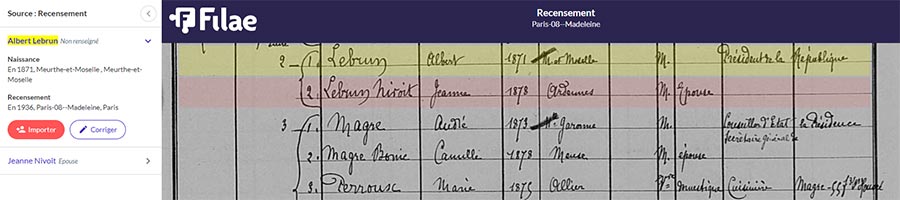 Source : Recensement
Albert Lebrun Non renseigné
Naissance
En 1871, Meurthe-et-Moselle , Meurthe-et-
Moselle
Recensement
En 1936, Paris-08--Madeleine, Paris
Importer Corriger
Jeanne Nivoit Epouse
Filae
Recensement
Paris-08--Madeleine
2 1. Lebrun Albert 1871 M. et Moselle M. Président de la République
2. Lebrun Nivoit Jeanne 1878 Ardennes M. Epouse
3 1. Magre André 1873 Hte Garonne M. Conseiller d'Etat la Présidence
Secrétaire général de
2. Magre Camille 1878 Meuse M. épouse
3. Perroux Marie 1875 Allier Vve domestique Cuisinière Magre